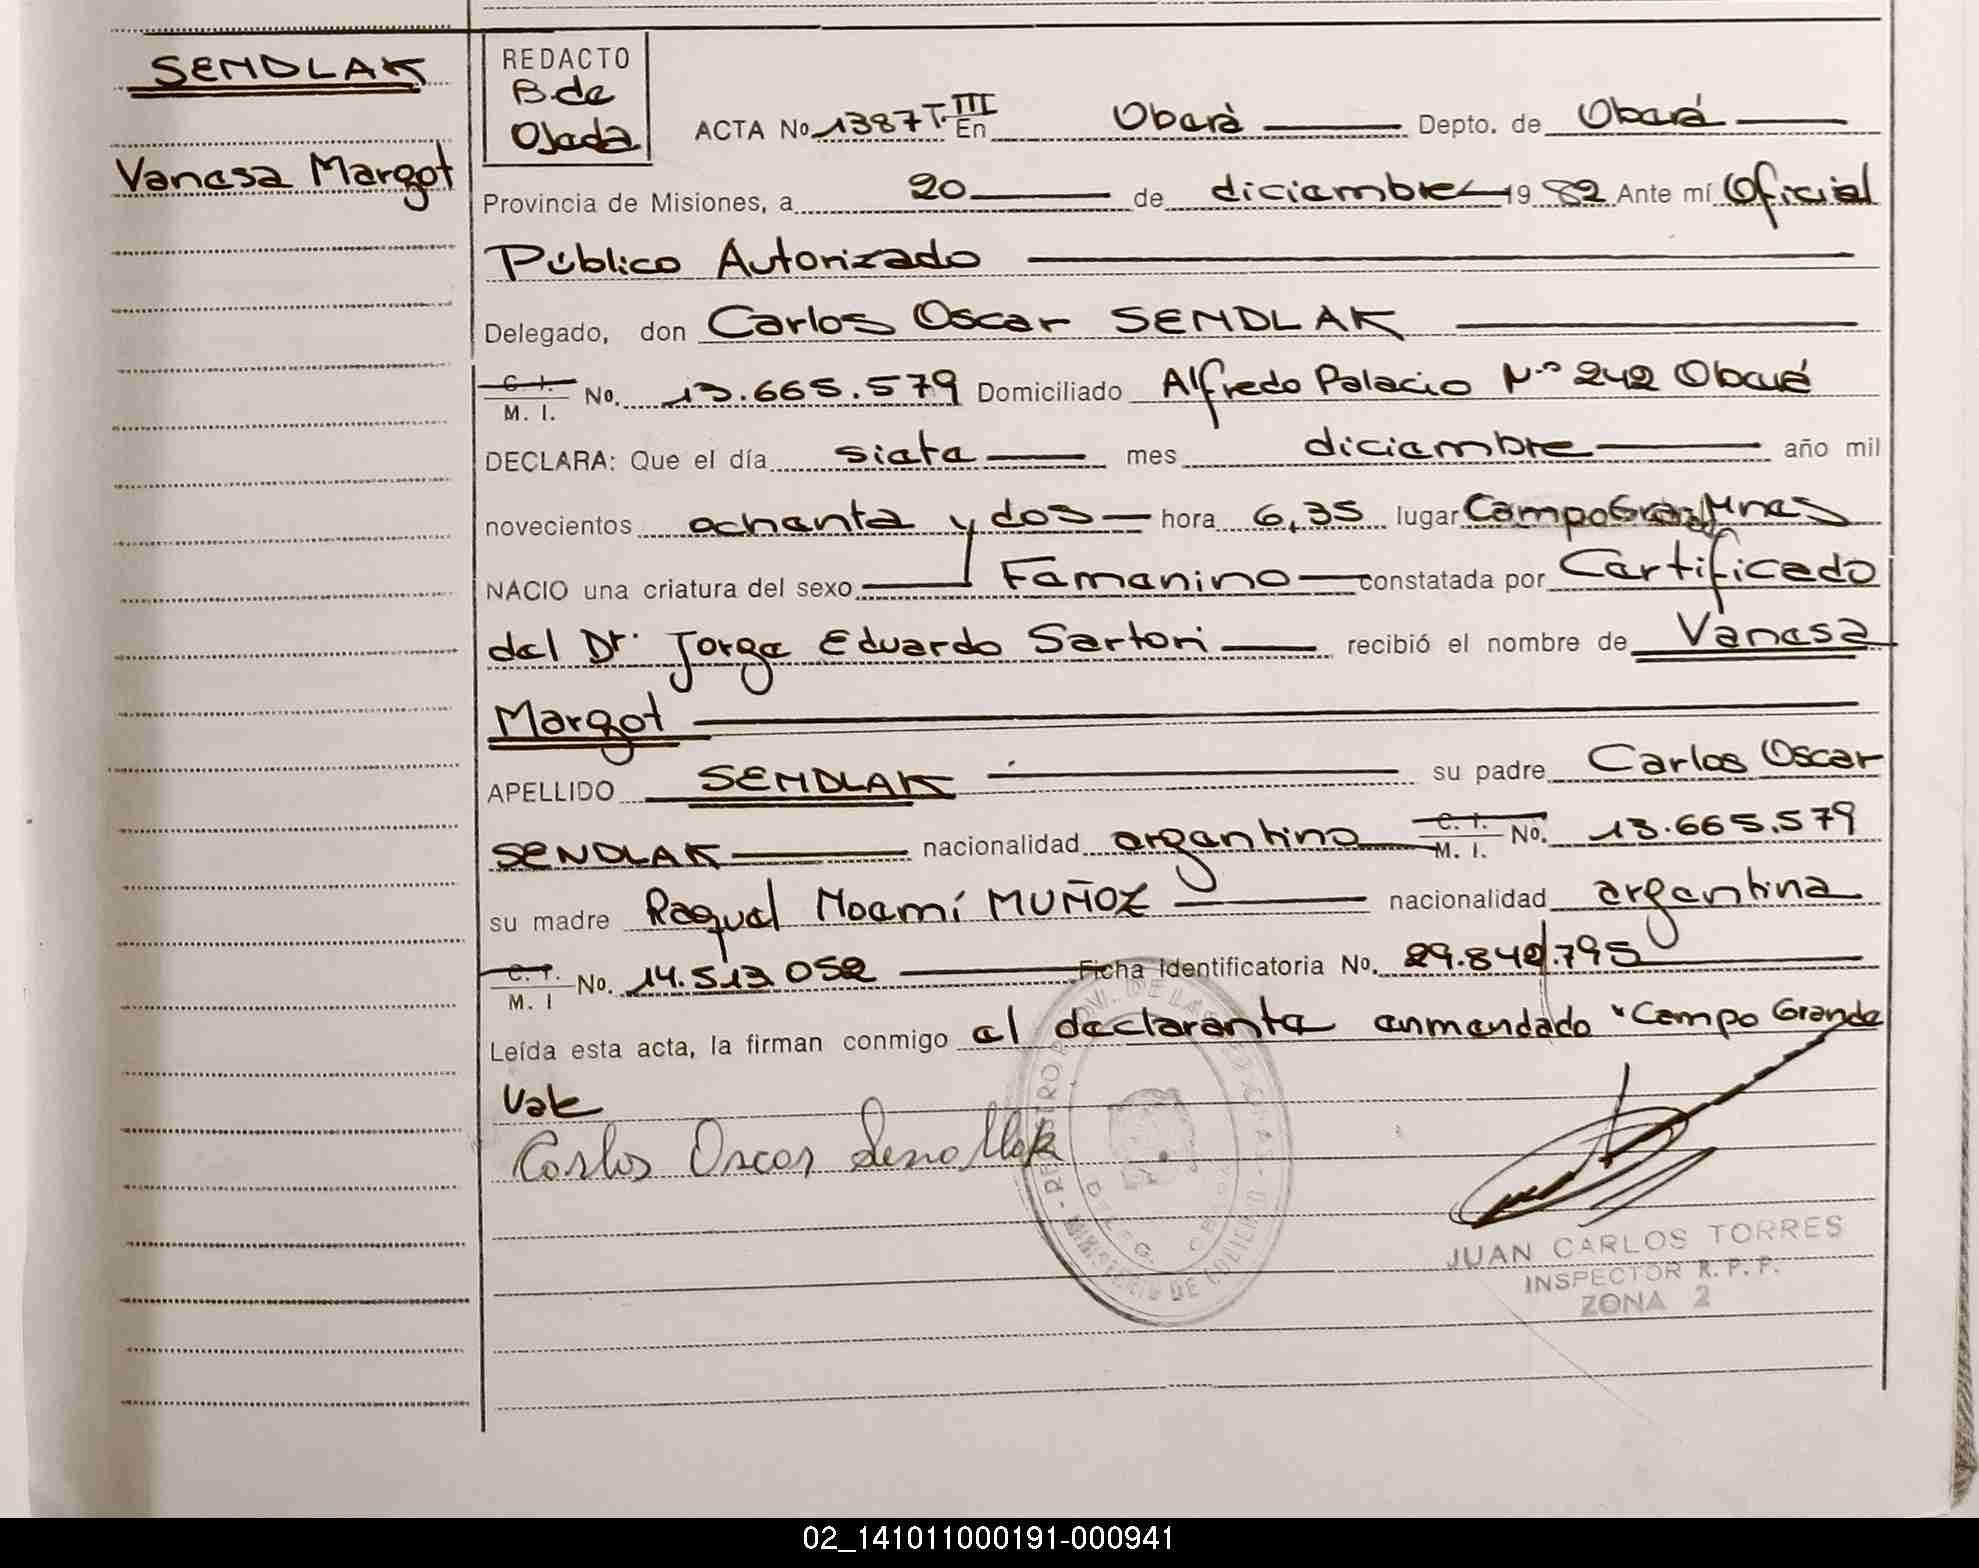 SENDLAK
Vanesa Margot
REDACTO
B. de
Ojeda
ACTA No 1387 T. III En Oberá Depto. de Oberá
Provincia de Misiones, a 20 de diciembre 19 82 Ante mí Oficial
Público Autorizado
Delegado, don Carlos Oscar SENDLAK
C. I.
M. I. No. 13.665.579 Domiciliado Alfredo Palacio Nº 242 Oberá
DECLARA: Que el día siete mes diciembre año mil
novecientos ochenta y dos hora 6,35 lugar Campo Mnes
NACIO una criatura del sexo Femenino constatada por Certificado
del Dr. Jorge Eduardo Sartori recibió el nombre de Vanesa
Margot
APELLIDO SENDLAK su padre Carlos Oscar
SENDLAK nacionalidad argentino C. I. M. I. No. 13.665.579
su madre Raquel Noemí MUÑOZ nacionalidad argentina
C. I.
M. I No. 14.513.052 Ficha identificatoria No. 29.842.795
Leída esta acta, la firman conmigo el declarante enmendado "Campo Grande
Vale
Carlos Oscar Sendlak
JUAN CARLOS TORRES
INSPECTOR R. P. P.
ZONA 2
02_141011000191-000941